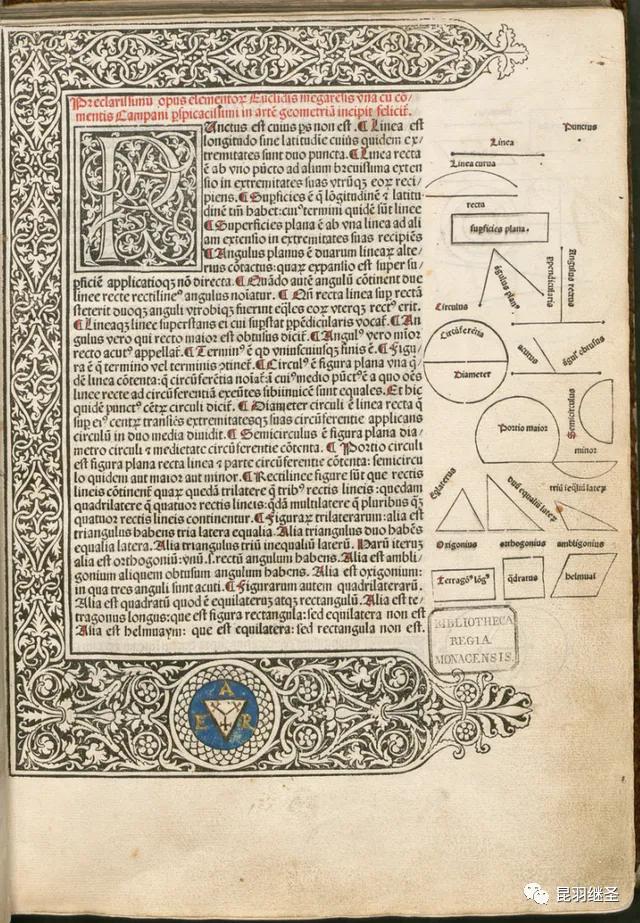 Preclarissimū opus elementorꝝ Euclidis megarēsis vna cū cō/
mentis Campani pspicacissimi in artē geometriā incipit felicit̄.
PUnctus est cuius ps non est. ¶ Linea est
longitudo sine latitudie cuius quidem ex/
tremitates sunt duo puncta. ¶ Linea recta
ē ab vno pūcto ad alium breuissima exten
sio in extremitates suas vtrūqꝫ eoꝝ reci/
piens. ¶ Supficies ē q̄ lōgitudinē ⁊ latitu
dinē tm̄ habet: cuiꝰ termini quidē sūt linee
¶ Superficies plana ē ab vna linea ad ali
am extensio in extremitates suas recipiēs
¶ Angulus planus ē duarum linearꝝ alte
rius cōtactus: quarꝝ expansio est super su/
pficiē applicatioqꝫ nō directa. ¶ Quādo autē angulū cōtinent due
linee recte rectilineꝰ angulus noiatur. ¶ Qn̄ recta linea sup rectā
steterit duoqꝫ anguli vtrobiqꝫ fuerint eq̄les eoꝝ vterqꝫ rectꝰ erit.
¶ Lineaqꝫ linee superstans ei cui supstat ppēdicularis vocat̄. ¶ An
gulus vero qui recto maior est obtusus dicit̄. ¶ Angulꝰ vero mīor
recto acutꝰ appellat̄. ¶ Terminꝰ ē qd vniuscuiusqꝫ finis ē. ¶ Figu/
ra ē q̄ termino vel terminis ꝯtinet̄. ¶ Circulꝰ ē figura plana vna q̄/
dē linea cōtenta: q̄ circūferētia noiat̄: ī cuiꝰ medio pūctꝰ ē a quo oēs
linee recte ad circūferentiā exeūtes sibiinuicē sunt equales. Et hic
quidē punctꝰ cētꝝ circuli dicit̄. ¶ Diameter circuli ē linea recta q̄
sup eiꝰ centꝝ transiēs extremitatesqꝫ suas circūferentie applicans
circulū in duo media diuidit. ¶ Semicirculus ē figura plana dia/
metro circuli ⁊ medietate circūferentie cōtenta. ¶ Portio circuli
est figura plana recta linea ⁊ parte circūferentie cōtenta: semicircu
lo quidem aut maior aut minor. ¶ Rectilinee figure sūt que rectis
lineis cōtinent̄ quarꝝ quedā trilatere q̄ tribꝰ rectis lineis: quedam
quadrilatere q̄ quatuor rectis lineis: qdā multilatere q̄ pluribus qꝫ
quatuor rectis lineis continentur. ¶ Figurarꝝ trilaterarum: alia est
triangulus habens tria latera equalia. Alia triangulus duo habēs
equalia latera. Alia triangulus triū inequaliū laterū. Harū iteruꝫ
alia est orthogoniū: vnū .s. rectū angulum habens. Alia est ambli/
gonium aliquem obtusum angulum habens. Alia est oxigonium:
in qua tres anguli sunt acuti. ¶ Figurarum autem quadrilaterarū.
Alia est quadratū quod ē equilaterū atqꝫ rectangulū. Alia est te/
tragonus longus: que est figura rectangula: sed equilatera non est
Alia est helmuaym: que est equilatera: sed rectangula non est.
Punctus
Linea
Linea curua
recta
supficies plana.
āgulus planꝰ
ppendicularis
Angulus rectus
Circulus
Circūferētia
Diameter
acutus
āgul̄ obtusus
Semicirculus
Portio maior
minor
Eqlaterus
duū equaliū lateꝝ
triū īeq̄liū lateꝝ
Oxigonius
orthogonius
ambligonius
Tetragōꝰ lōgꝰ
q̄dratus
helmual
BIBLIOTHECA
REGIA
MONACENSIS.
A
E R
昆羽继圣